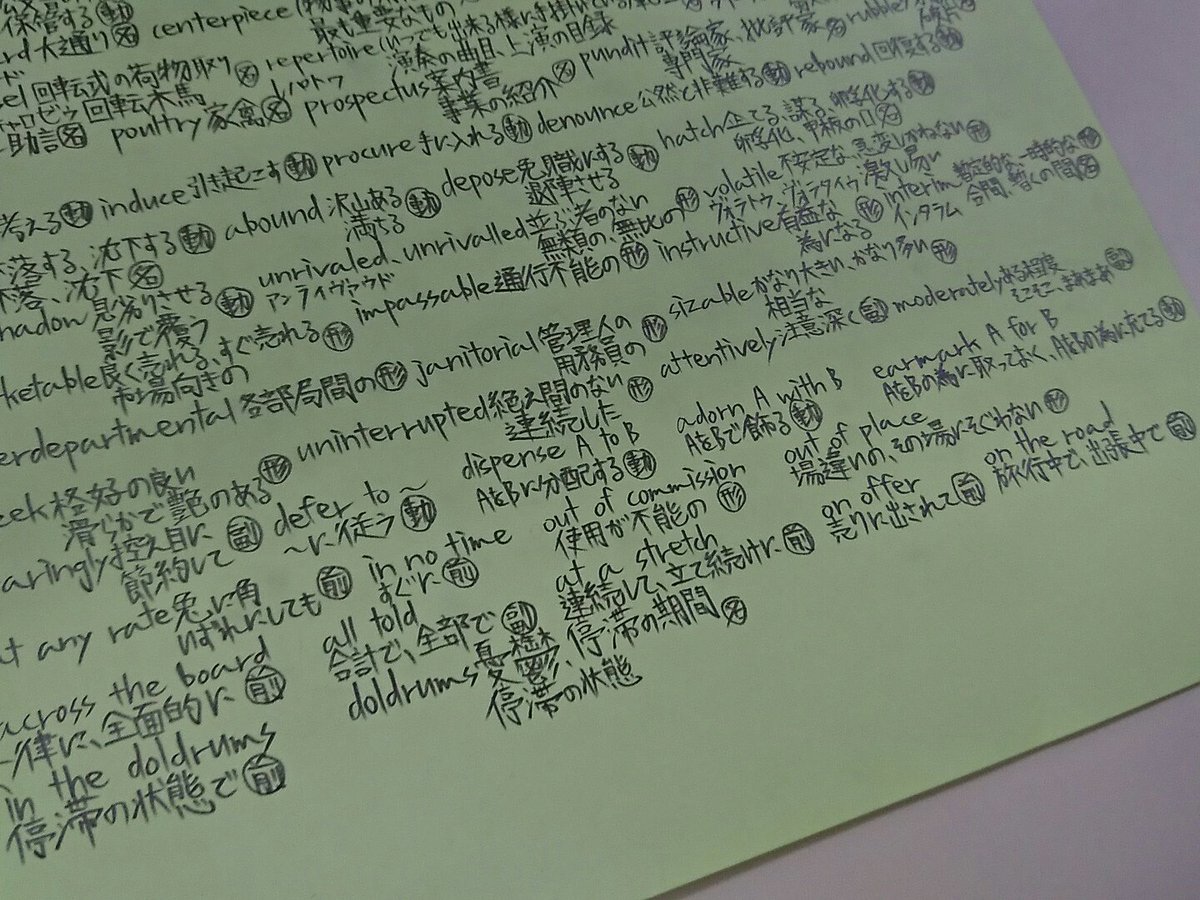 保管する 動 centerpiece
大通り 名 最も重要なもの
sel 回転式の荷物取り 名 repertoire (いつでも出来る様に手掛けている
演奏の曲目、上演の目録
回転木馬 レパトワ
助言 名 poultry 家禽 名 prospectus 案内書 名 pundit 評論家、批評家 名 rubble
事業の紹介 専門家
考える 動 induce 引き起こす 動 procure 手に入れる 動 denounce 公然と非難する 動 rebound 回復する 動
下落する、沈下する 動 abound 沢山ある 動 depose 免職にする 動 hatch 企てる、謀る、孵化する 動
下落、沈下 名 満ちる 退陣させる 孵化、甲板の口 名
unrivaled, unrivalled 並ぶ者のない 形 volatile 不安定な、急変しかねない 形
アンライヴァウド 無類の、無比の 激し易い
hadow 見劣りさせる 動 impassable 通行不能の 形 instructive 有益な 形 interim 暫定的な、一時的な 形
影で覆う 為になる インタラム 合間、暫くの間 名
ketable 良く売れる、すぐ売れる 形 janitorial 管理人の 形 sizable かなり大きい、かなり多い 形
市場向きの 用務員の 相当な
erdepartmental 各部局間の 形 uninterrupted 絶え間のない 形 attentively 注意深く 副 moderately ある程度 副
連続した そこそこ、まあまあ
eek 格好の良い 形 dispense A to B adorn A with B earmark A for B
滑らかで艶のある AをBに分配する 動 AをBで飾る 動 AをBの為に取っておく、AをBの為に充てる 動
aringly 控え目に 副 defer to ~ out of commission out of place
節約して ~に従う 動 使用が不能の 形 場違いの、その場にそぐわない 形
at any rate 兎に角 in no time at a stretch on offer on the road
いずれにしても 前 すぐに 前 連続して、立て続けに 前 売りに出されて 前 旅行中で、出張中で 前
across the board all told
一律に、全面的に 前 合計で、全部で 副
in the doldrums doldrums 憂鬱、停滞の期間 名
停滞の状態で 前 停滞の状態